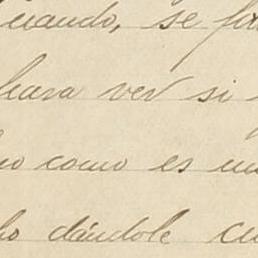 cuando, se
para ver si
no como es un
ho dándole cu